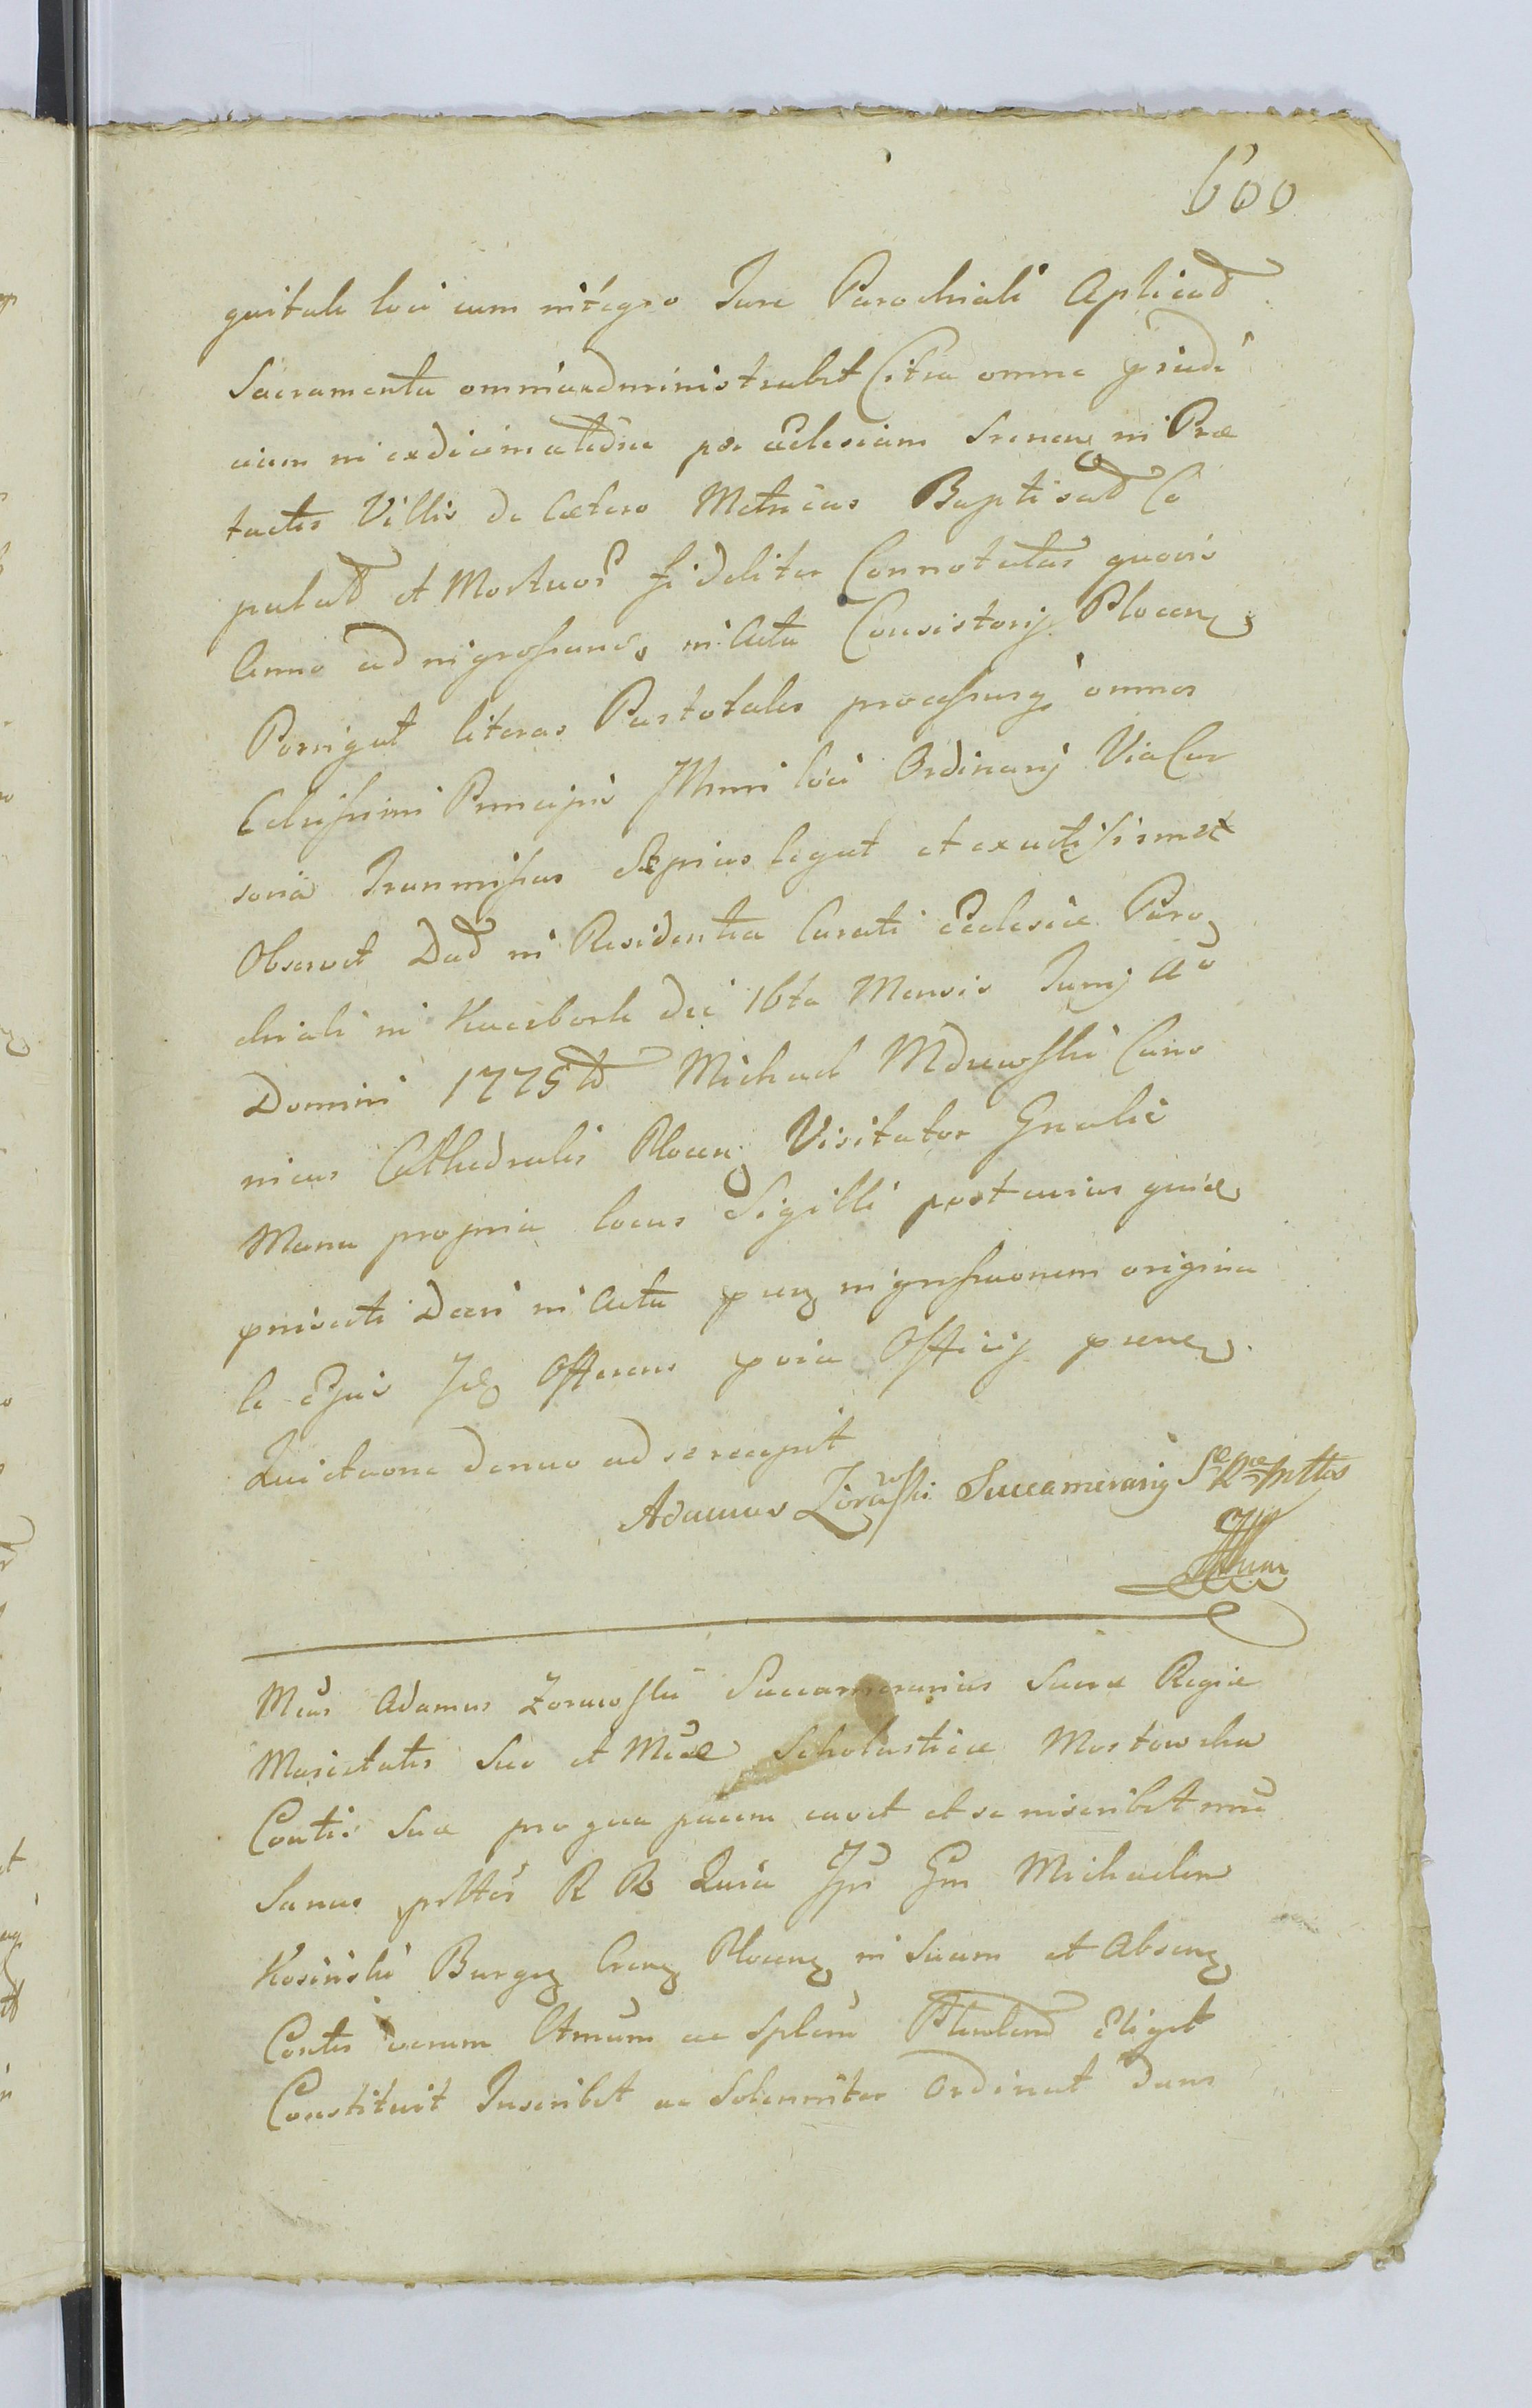 600
guitale loci cum integro Jure Parochiali Aplicad
Sacramenta omnia administrabit Citra omne prjudi
cium in exdecimatione per Ecclesiam Srenen in Præ
tactis Villis de Cœtero Metricas Baptisatt Co
pulatt et Mortuor fideliter Connotatas quovis
Anno ad ingrossand in Acta Consistorij Plocen
Porrigat literas Pastorales processusq omnes
Celsissimi Principis Illmi loci Ordinarij Via Cur
soria Transmissas Sæpius legat et exactissime
Observet Datt in Residentia Curati Ecclesiæ Paro
chiali in Kucebork die 16ta Mensis Junij Ao
Domini 1775tt Michael Mdzewski Cano
nicus Cathedralis Plocen Visitator Gnalis
Manu propria locus Sigilli post cuius quid
privati Decri in Acta pnt ingrossaonem origina
le Ejus Id Offerens pria Officij pnte
Quietaone denuo ad se recepit
Adamus Zorawski Succamerarig S R Mttis
Mcus Adamus Zorawski Succamerarius Sacræ Regiæ
Maiestatis Suo et Mcæ Scholasticæ Mostowska
Contis Suæ pro qua pacem cavet et se inscribit
Sanus R R Quia Ipse Gsm Michaelem
Kosinski Burgr Cren Plocen in Suum et Absen
Contis verum ltmum ac splem Plenlend Eligit
Constituit Inscribit ac Solenniter Ordinat Dans